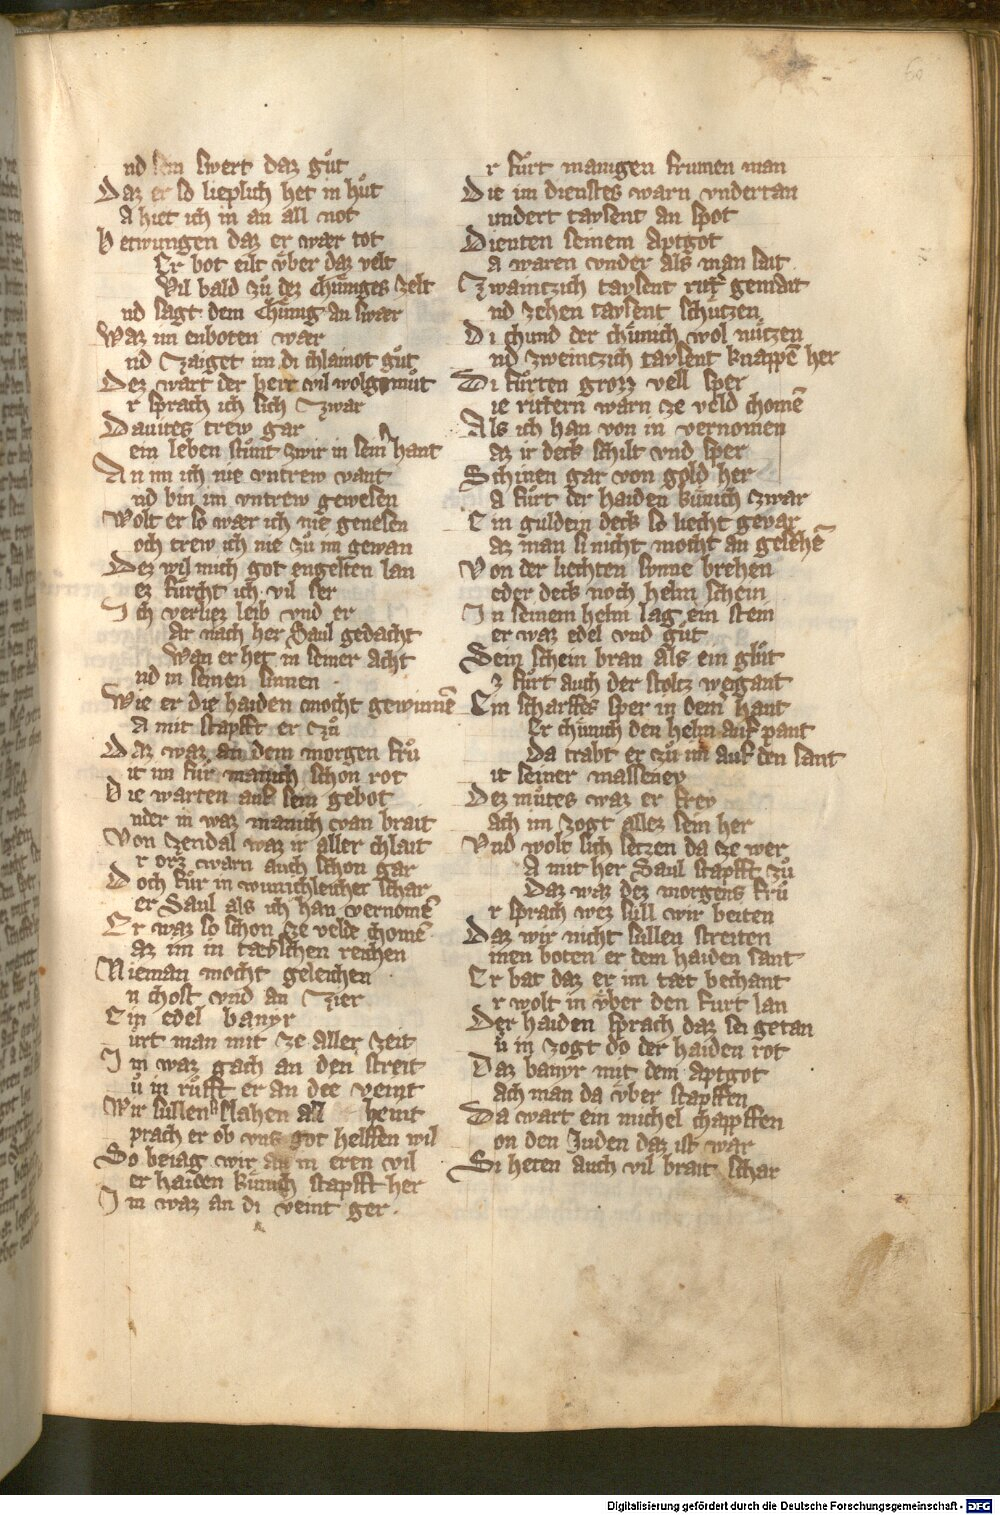 nd sein swert daz gůt
Daz er so lieplich het in hůt
A hiet ich in an all not
Betwungen daz er wær tot
Er bot eilt v̈ber daz velt
Vil bald zů dez chu̇niges zelt
nd sagt dem Chu̇nig an swær
Waz im enboten wær
nd Tzaiget im di chlainot gůt
Dez wart der herr vil wolgemůt
r sprach ich sich Tzwar
Dauites trew gar
ein leben stůnt zwir in seinr hant
An im ich nie vntrew vant
nd bin im vntrew gewesen
Wolt er so wær ich nie genesen
och trew ich nie zů im gewan
Dez wil mich got engelten lan
ez fu̇rcht ich vil ser
Ich verliez leib vnd er
Ar nach her Saul gedacht
Wan er het in seiner acht
nd in seinen sinnen
Wie er die haiden mocht gewinnē
A mit stapfft er Tzů
Daz waz an dem morgen frů
it im fůr manich schon rot
Die warten auf sein gebot
nder in waz manich van brait
Von zendal waz ir aller chlait
r orz warn auch schon gar
Doch fůr in wunichleicher schar
er Saul als ich han vernomē
Er waz so schon ze velde chomē
az im in tæwschen reichen
Nieman mocht geleichen
n chost vnd an Tzier
Ein edel banyr
ůrt man mit ze aller zeit
Im waz gach an den streit
ů in růfft er an dee veint
Wir sullens slahen all heint
prach er ob vns got helffen wil
So beiag wir an in eren vil
er haiden ku̇nich stapfft her
Im waz an di veint ger
r fůrt manigen frumen man
Die im dienstes warn vndertan
undert tavsent an spot
Dienten seinem Aptgot
a waren vnder als man sait
Zwaintzich tavsent ritr gemait
nd zehen tavsent schutzen
Di chund der chu̇nich wol nu̇tzen
nd zweintzich tavsent knappē her
Di fůrten groz vell sper
ie rittern warn ze veld chomē
Als ich han von in vernomen
az ir deck schilt vnd sper
Schinen gar von gold her
A fůrt der haiden ku̇nich zwar
Ein guldein deck so liecht gevar
az man si nicht mocht an gesehē
Von der liechten sunne brehen
eder deck noch helm schein
In seinem helm lag ein stein
er waz edel vnd gůt
Sein schein bran als ein glůt
z fůrt auch der stoltz weigant
Ein scharffes sper in dem hant
Er chu̇nich den helm auf pant
Da trabt er zů im auf den sant
it seiner masseney
Dez můtes waz er frey
ach im zogt allez sein her
Vnd wolt sich setzen da ze wer
A mit her Saul stapfft zů
Daz waz dez morgens frů
r sprach wez sull wir beiten
Daz wir nicht sullen streiten
inen boten er dem haiden sant
Er bat daz er im tæt bechant
r wolt in v̈ber den furt lan
Der haiden sprach daz sei getan
ů in zogt do der haiden rot
Daz banyr mit dem aptgot
ach man da v̈ber stapffen
Da wart ein michel chapffen
on den Juden daz ist war
Si heten auch vil brait schar
Digitalisierung gefördert durch die Deutsche Forschungsgemeinschaft - DFG